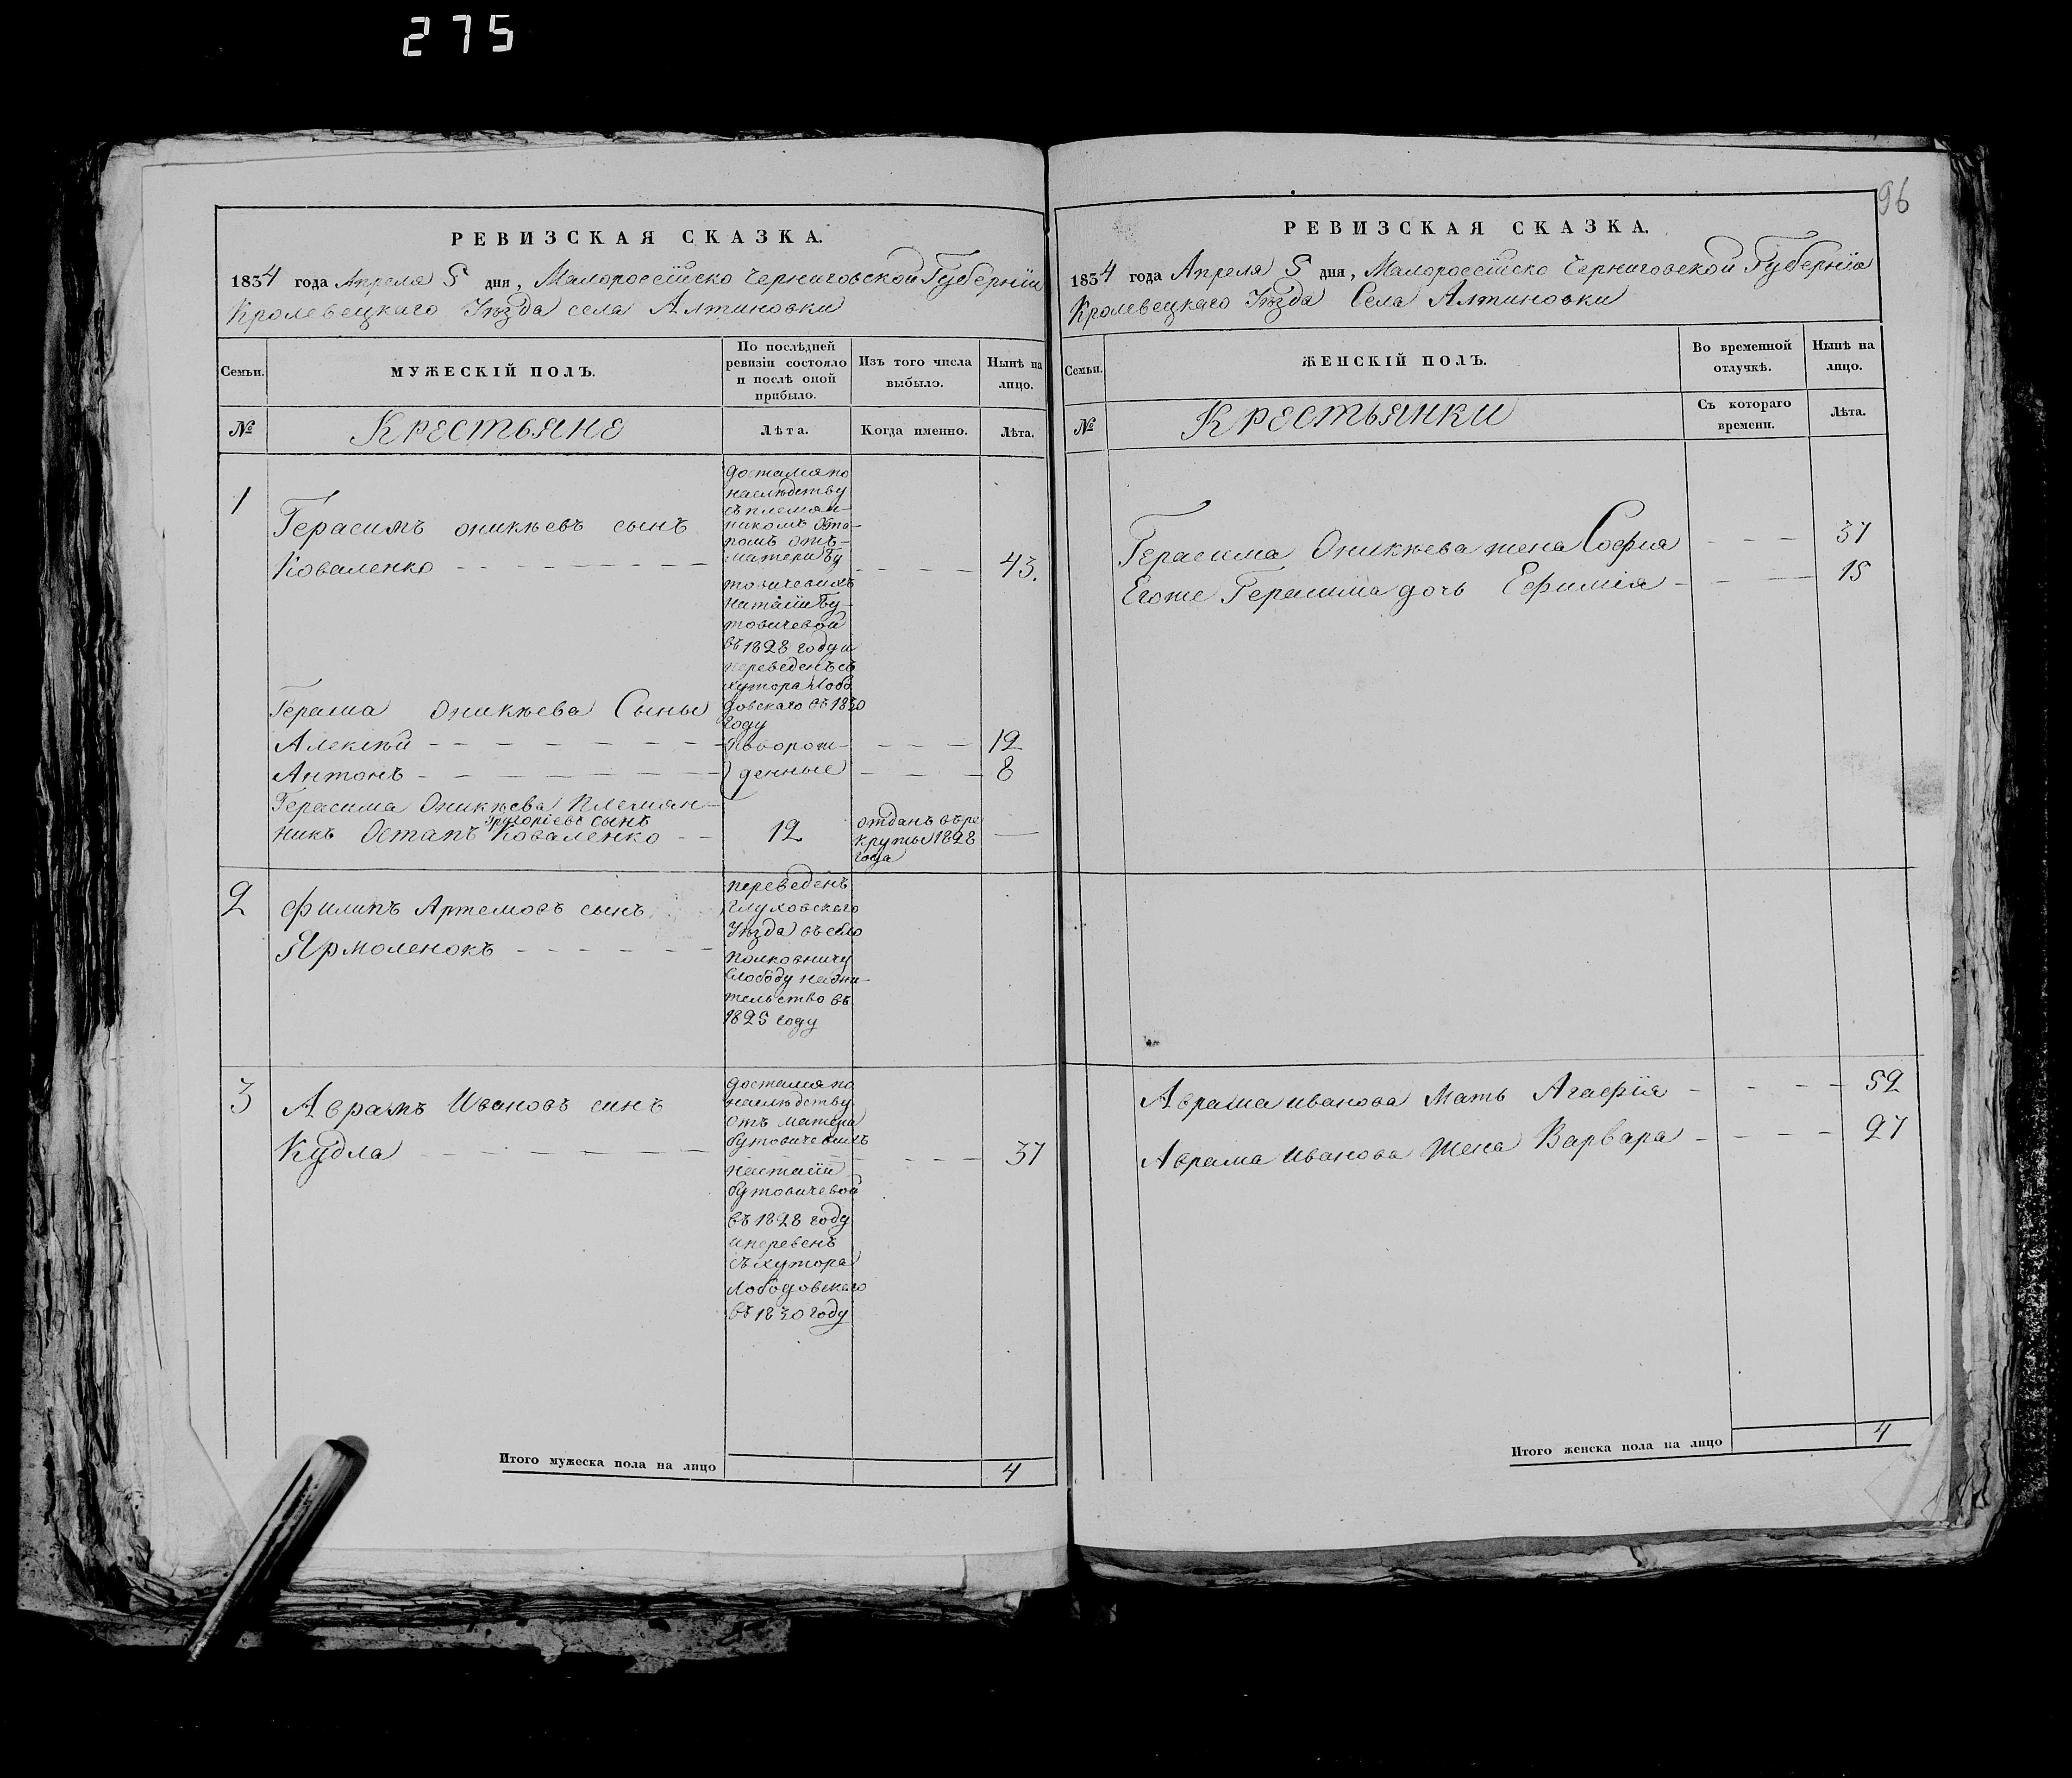 275
96
РЕВИЗСКАЯ СКАЗКА.
1834 года Апреля 5 дня, Малороссiйско Черниговской Губернiи
Кролевецкаго Уѣзда села Алтиновки
Семьи.
МУЖЕСКІЙ ПОЛЪ.
По послѣдней
ревизіи состояло
и послѣ оной
прибыло.
Изъ того числа
выбыло.
Нынѣ на
лицо.
№
Крестьяне
Лѣта.
Когда именно.
Лѣта.
1
Герасимъ Оникѣевъ сынъ
Коваленко
достался по
наслѣдству
съ племян-
никомъ Оста-
помъ отъ
матери Бу
товичевыхъ
Бу-
товичевой
въ 1828 году и
переведенъ съ
хутора Лобо
довскаго въ 1830
году
43.
Оникѣева Сыны
Алексѣй
Антонъ
новорож-
денные
12
8
Герасима Оникѣева Племян-
никъ Остапъ Григорiевъ сынъ Коваленко
12
отданъ въ ре
круты 1828
года
2
Филипъ Артемовъ сынъ
Ярмоленокъ
переведенъ
Глуховскаго
Уѣзда въ село
Полковничу
Слободу на жи-
тельство въ
1825 году
3
Аврамъ Ивановъ синъ
Кудла
достался по
наслѣдству
отъ матери
Бутовичевыхъ
Настасiи
Бутовичевой
въ 1828 году
и перевенъ
съ хутора
Лободовскаго
въ 1830 году
37
Итого мужеска пола на лицо
4
РЕВИЗСКАЯ СКАЗКА.
1834 года Апреля 5 дня, Малороссiйско Черниговской Губернiи
Кролевецкаго Уѣзда Села Алтиновки
Семьи.
ЖЕНСКІЙ ПОЛЪ.
Во временной
отлучкѣ.
Нынѣ на
лицо.
№
Крестьянки
Съ котораго
времени.
Лѣта.
Герасима Оникѣева жена София
37
Егоже Герасима дочь Ефимiя
15
Аврама Иванова Мать Агафiя
52
Аврама Иванова Жена Варвара
27
Итого женска пола на лицо
4